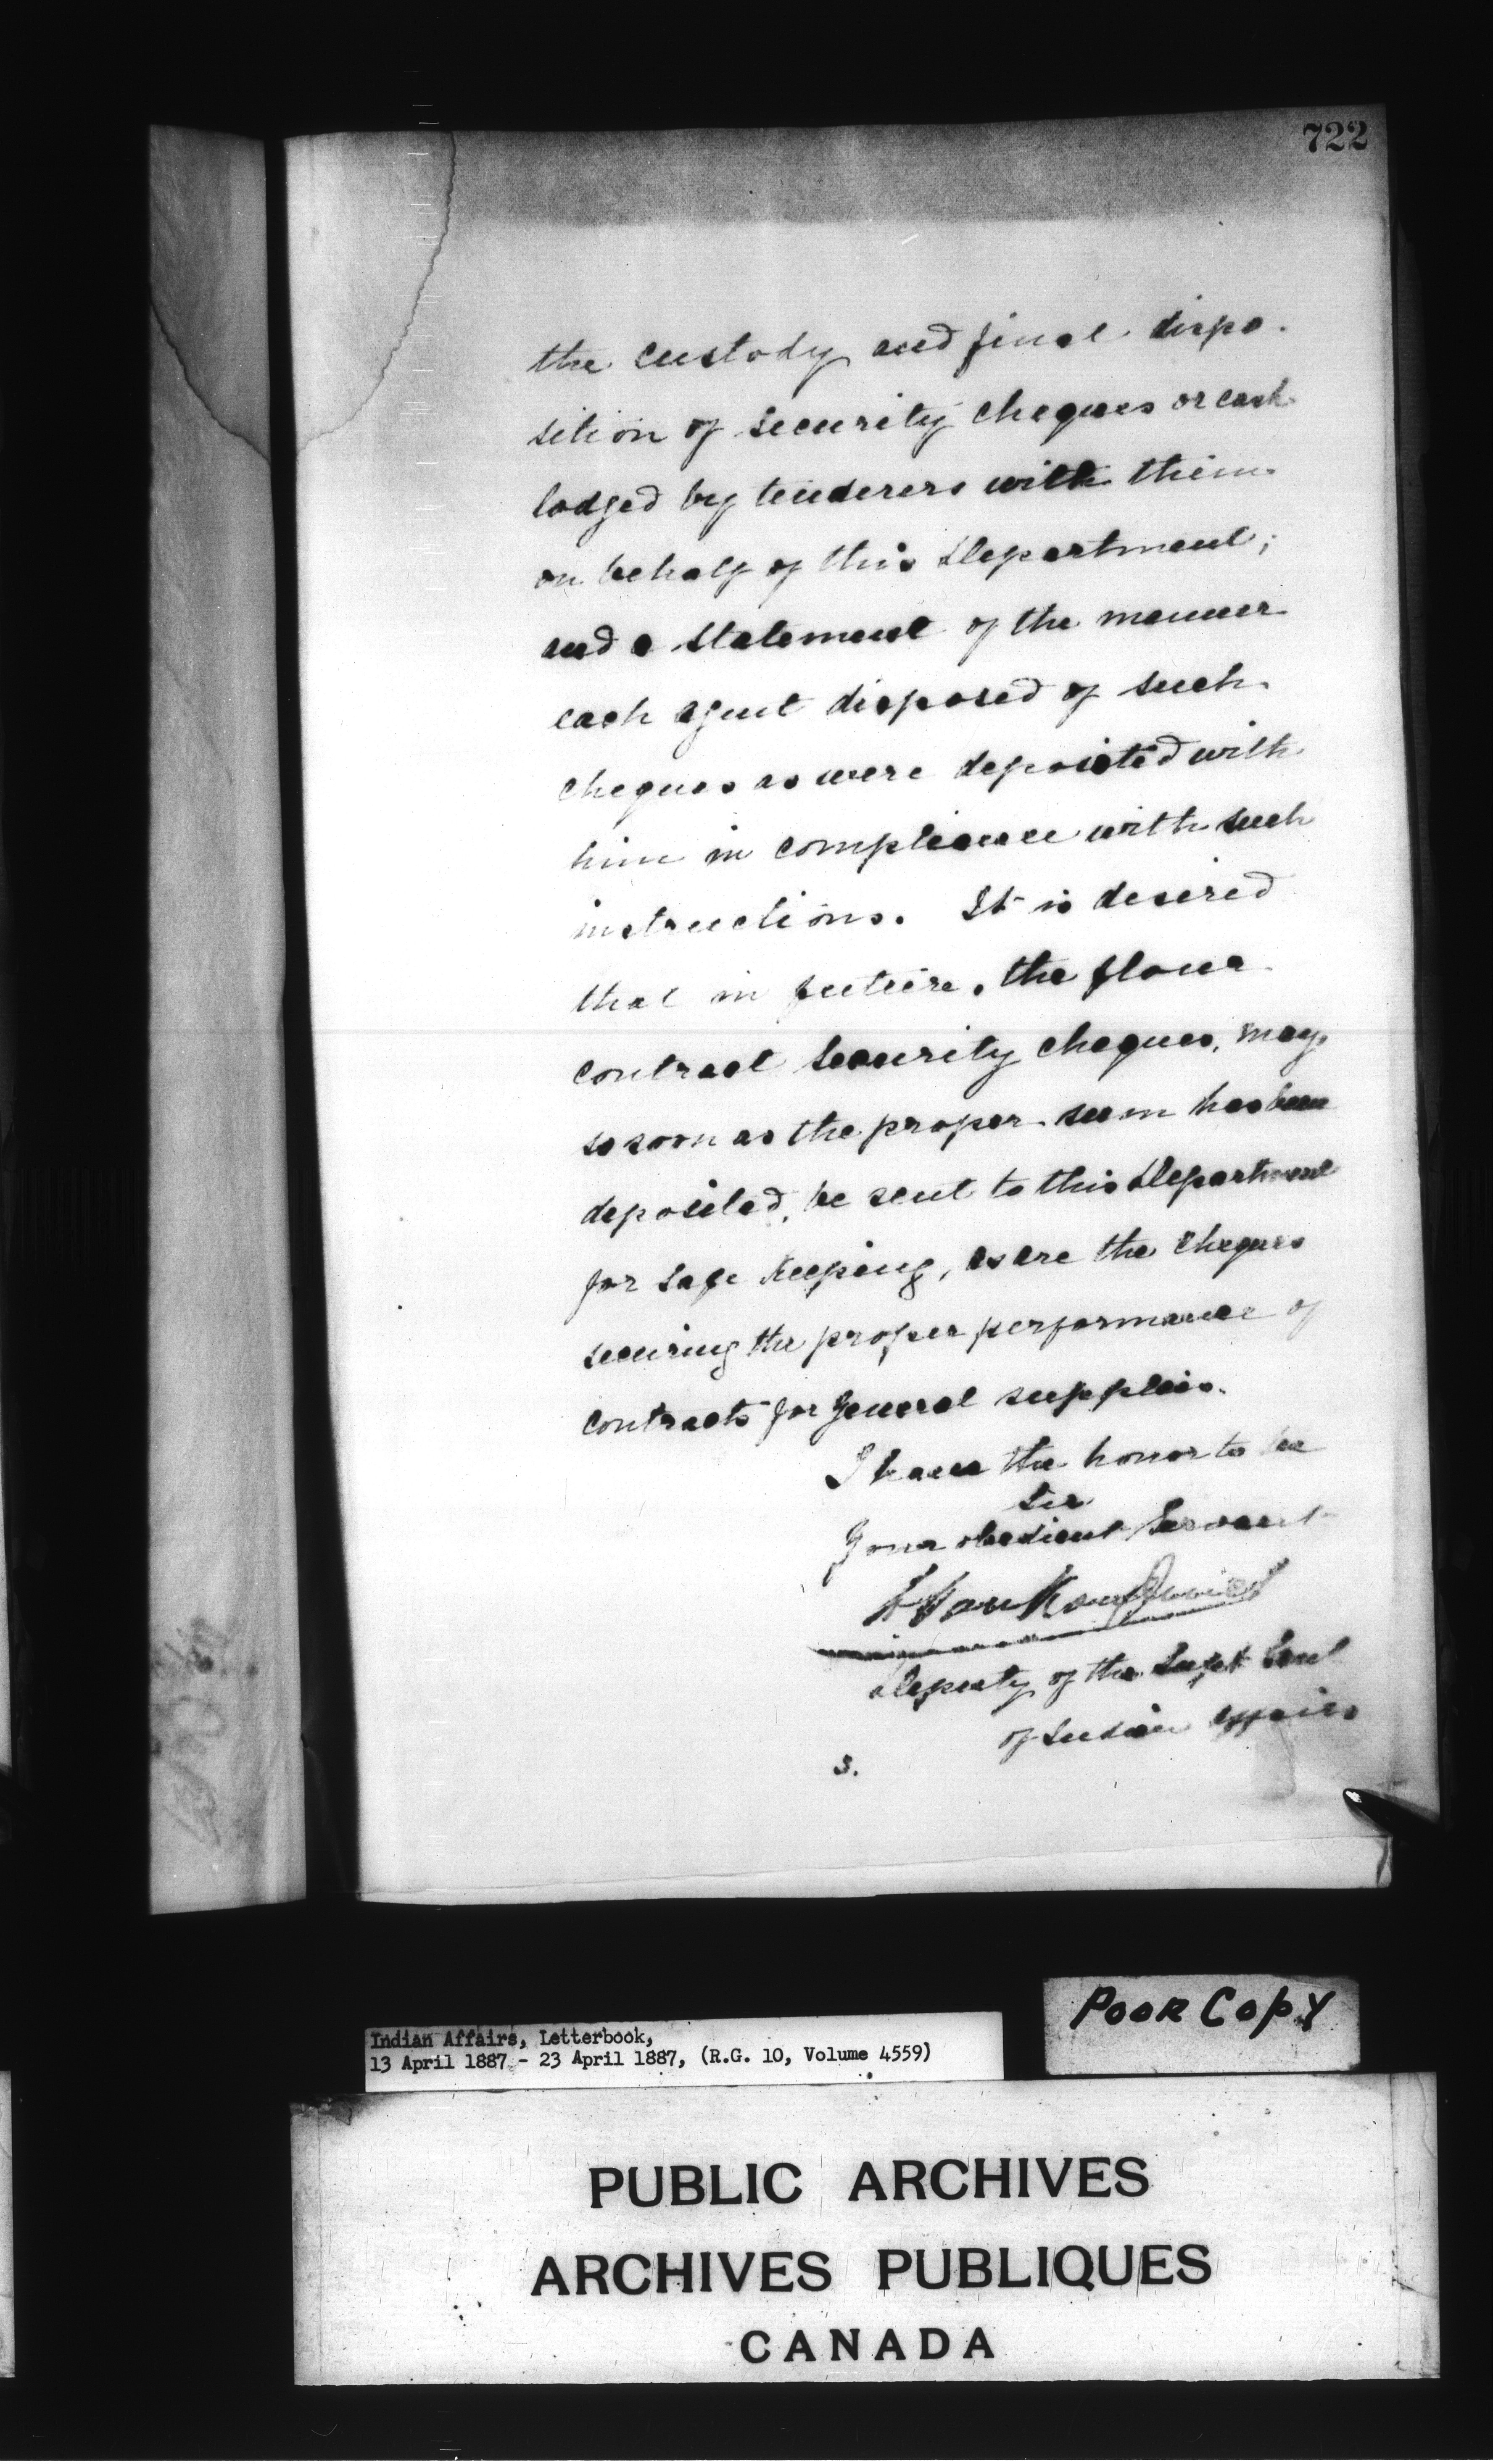 722
the custody and final dispo.
sition of security cheques or cash
lodged by tenderers with them
on behalf of this Department;
and a statement of the manner
each agent disposed of such
cheques as were deposited with
him in compliance with such
instructions. It is desired
that in future, the flour
contract security cheques, may,
so soon as the proper sum has been
deposited, be sent to this Department
for safe keeping, as are the cheques
securing the proper performance of
contracts for general supplies.
I have the honor to be
Sir
Your obedient Servant
L VanKoughnet
Deputy of the Supt Genl
of Indian Affairs
S.
Poor Copy
Indian Affairs, Letterbook,
13 April 1887 - 23 April 1887, (R.G. 10, Volume 4559)
PUBLIC ARCHIVES
ARCHIVES PUBLIQUES
CANADA